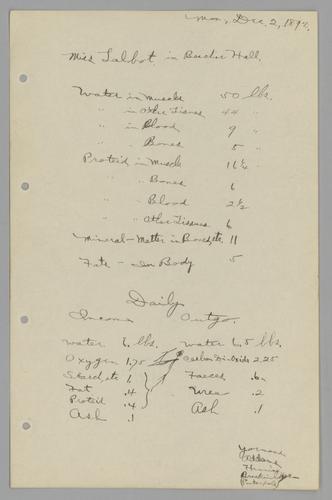 Mon, Dec. 2, 189
Miss Talbot in Beecher Hall.
Water in Muscles 50 lbs.
" in Other Tissues 44 "
" in Blood 9 "
" " Bones 5 "
Proteid in Muscle 16½ "
" " Bones 6
" " Blood 2½
" " Other Tissues 6
Mineral-Matter in Bones, etc. 11
Fats - in Body 5
Daily
Income Outgo.
Water 6 lbs. Water 6.5 lbs.
Oxygen 1.75 Carbon Di-Oxide 2.25
Starch, etc 1 Faeces .6
Fat .4 Urea .2
Proteid .4 Ash .1
Ash .1